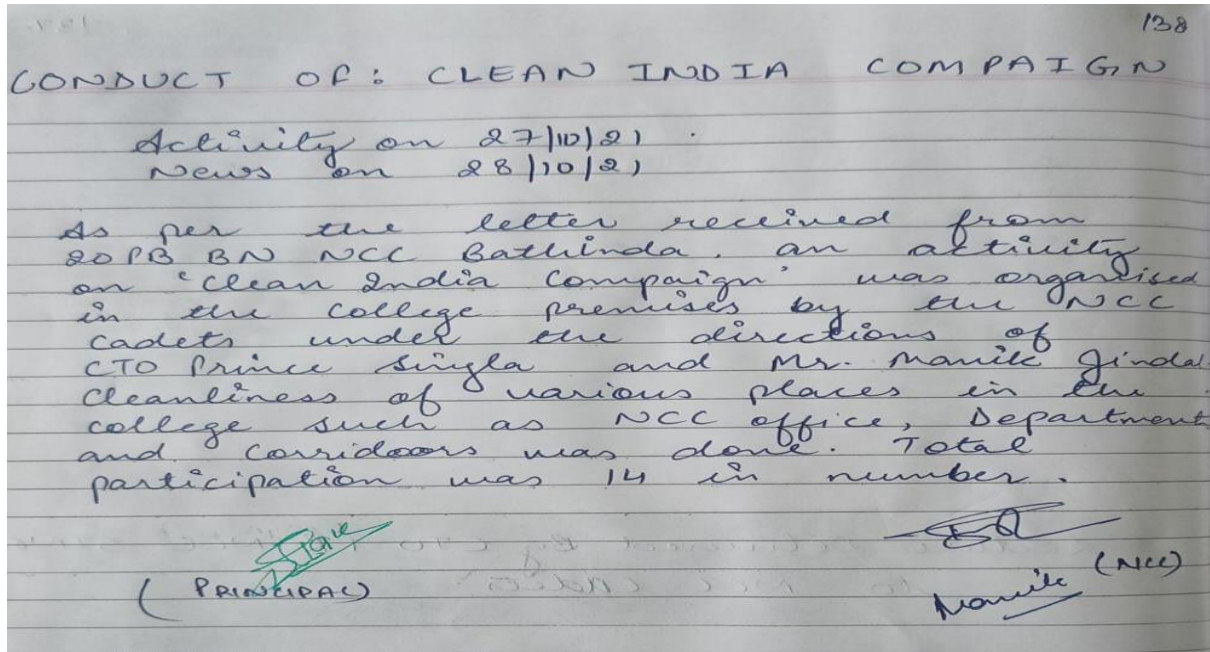 138
CONDUCT OF: CLEAN INDIA COMPAIGN
Activity on 27/10/21.
News on 28/10/21
As per the letter received from
20 PB BN NCC Bathinda. an aktivity
on 'Clean India Compaign' was organised
in the college premises by the NCC
cadets under the directions of
CTO Prince Singla and Mr. Manik Jindal.
Cleanliness of various places in the
college such as NCC office, Department
and corridoors was done. Total
participation was 14 in number.
(PRINCIPAL)
(NCC)
Manik